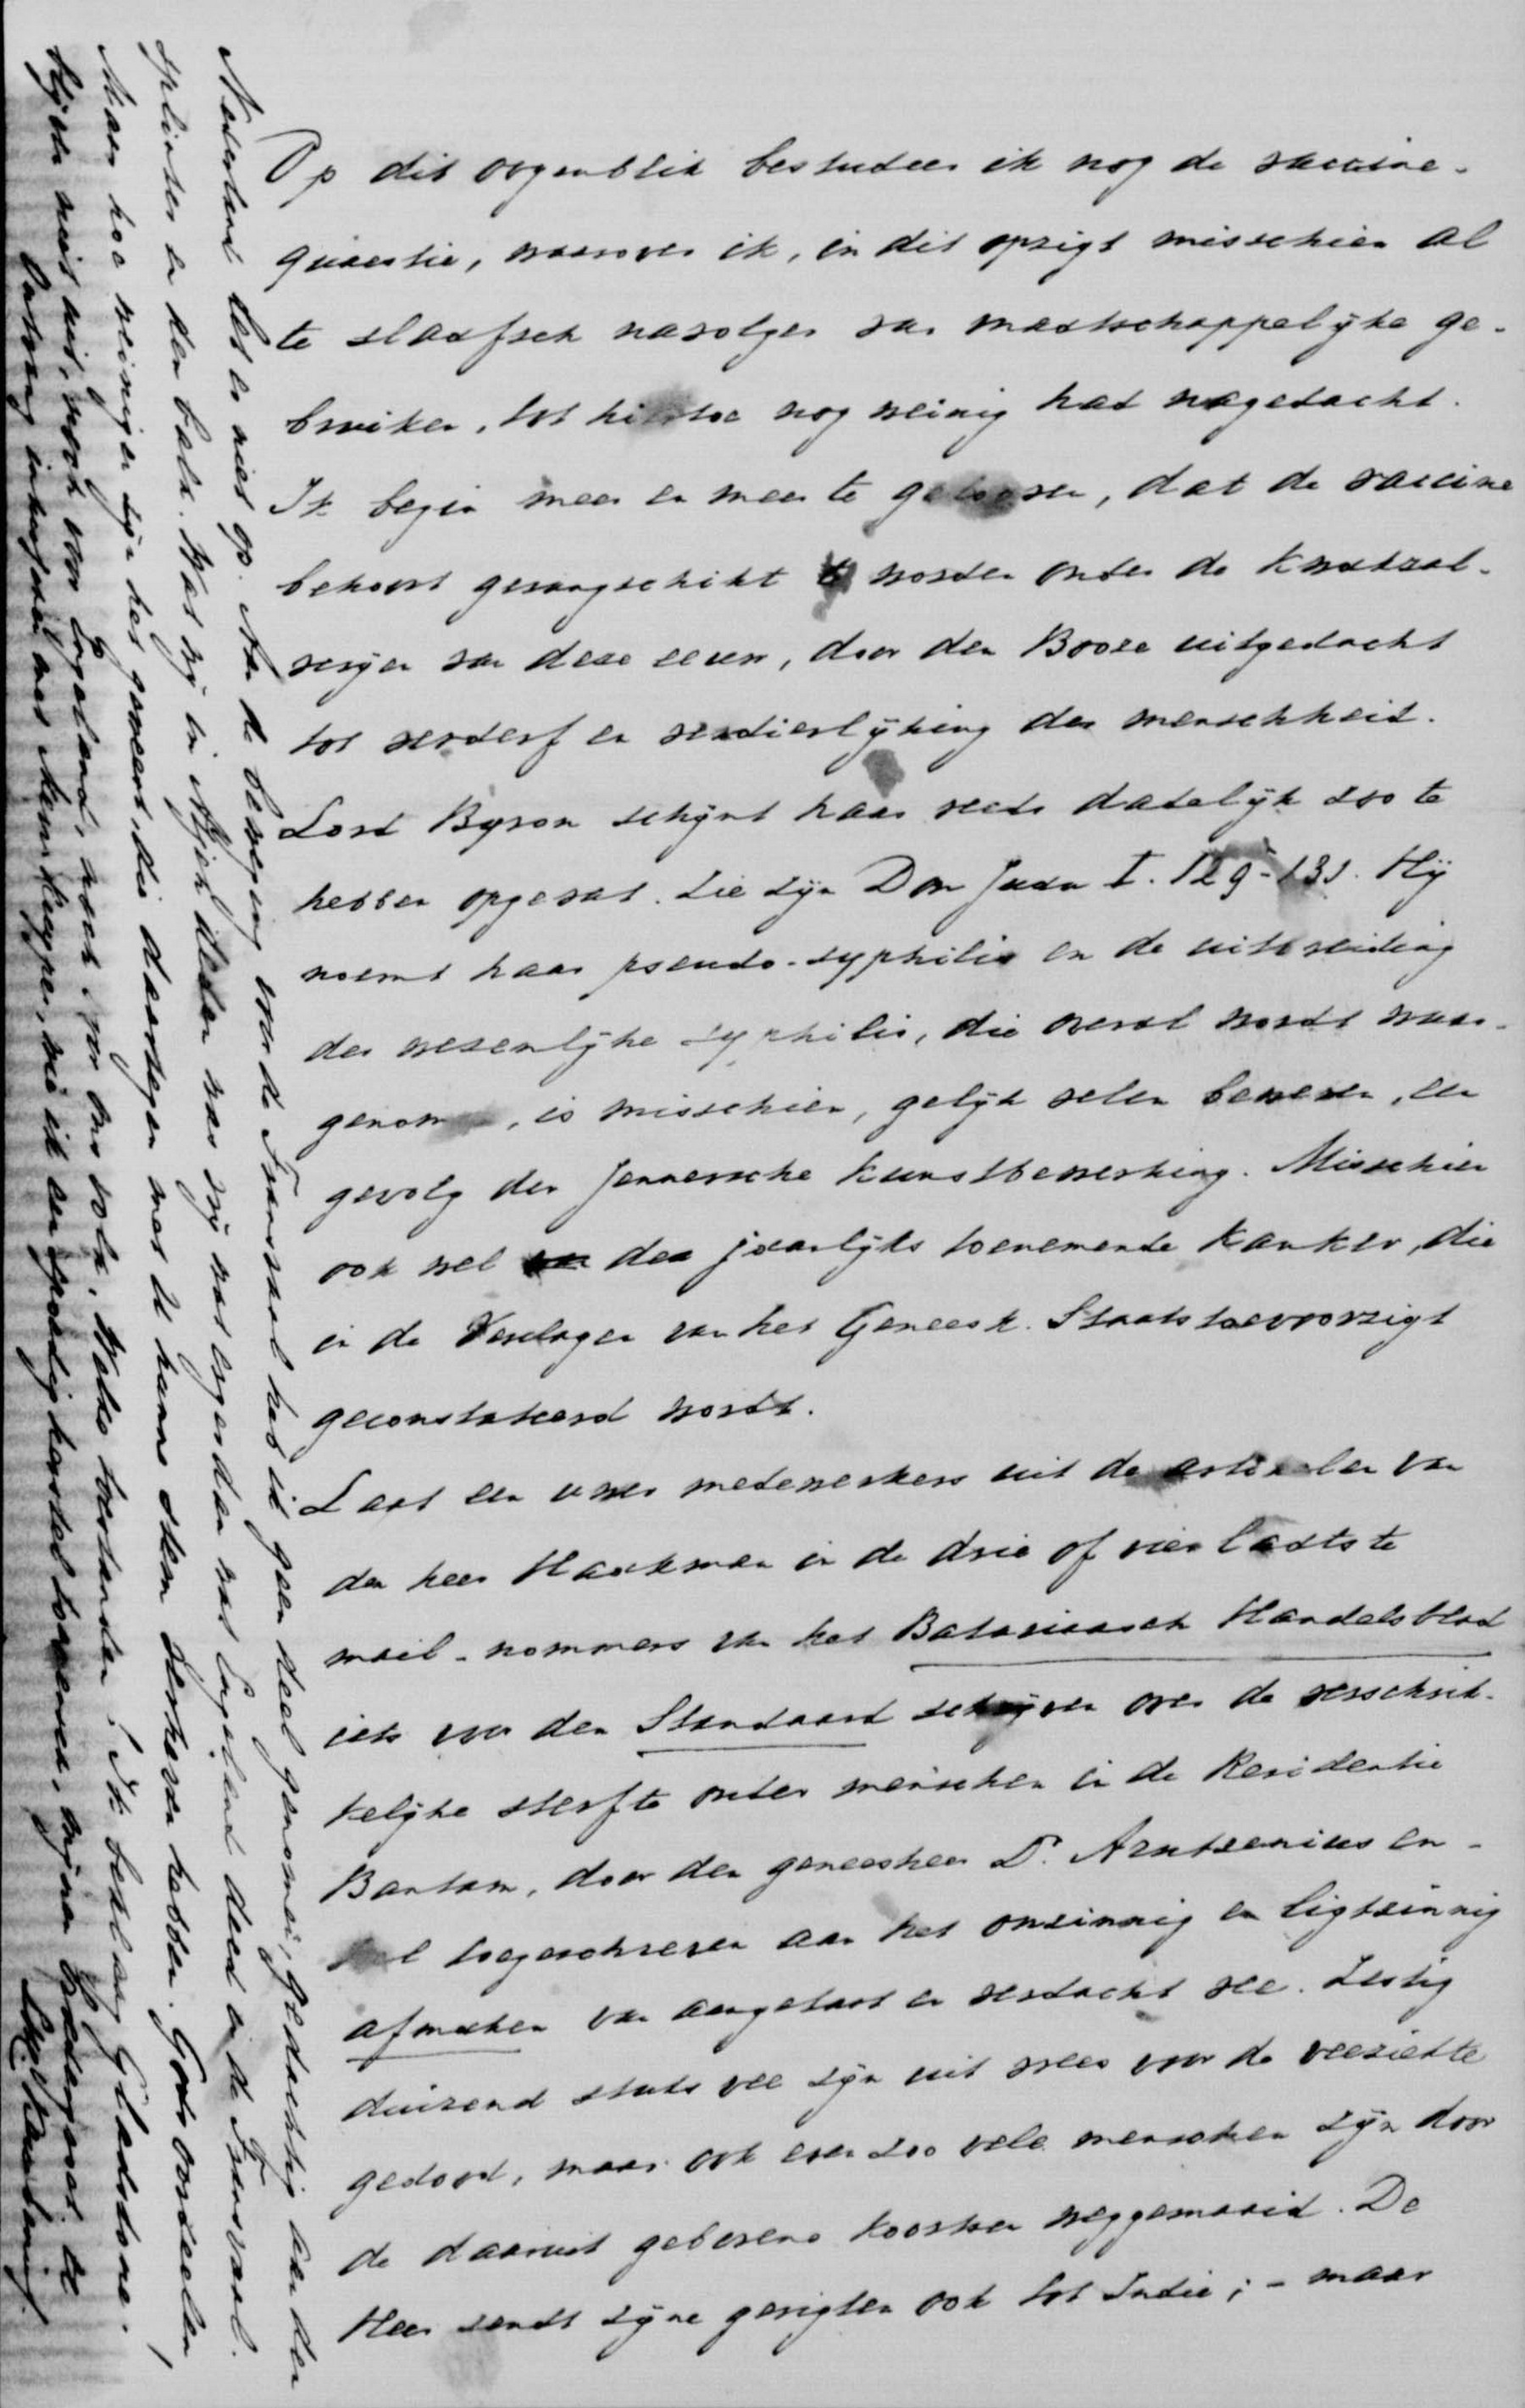 Op dit oogenblik bestudeer ik nog de vaccine-
quaestie, waarover ik, in dit opzigt misschien al
te slaafsch navolger van maatschappelijke ge-
bruiken, tot hiertoe nog weinig had nagedacht.
Ik begin meer en meer te gelooven, dat de vaccine
behoort gerangschikt te worden onder de kwakzal-
verijen van deze eeuw, door den Booze uitgedacht
tot verderf en verdierlijking der menschheid.
Lord Byron schijnt haar reeds dadelijk zoo te
hebben opgevat. Zie zijn Don Juan I. 129-131. Hij
noemt haar pseudo-syphilis en de uitbreiding
der wezenlijke syphilis, die overal wordt waar-
genomen, is misschien, gelijk velen beweren, een
gevolg der Jennersche kunstbewerking. Misschien
ook wel de jaarlijks toenemende kanker, die
in de Verslagen van het Geneesk. Staatstoevoorzigt
geconstateerd wordt.
Laat een uwer medewerkers uit de artikelen van
den heer Haakman in de drie of vier laatste
mail-nommers van het Bataviaasch Handelsblad
iets voor den Standaard schrijven over de verschrik-
kelijke sterfte onder menschen in de Residentie
Bantam, door den geneesheer Dr. Arntzenius en-
kel toegeschreven aan het onzinnig en ligtzinnig
afmaken van aangetast en verdacht vee. Zestig
duizend stuks vee zijn uit vrees voor de veeziekte
gedood, maar ook even zoo vele menschen zijn door
de daaruit geboren koortsen weggemaaid. De
Heer zendt zijne gerigten ook tot Indie; - maar
Nederland let er niet op. Aan de beweging voor de Transvaal heb ik geen deel genomen, gedachtig aan den
splinter en den balk. Wat wij in Atjeh deden was vrij wat erger dan wat Engeland deed in de Transvaal.
Maar hoe weinigen zijn het geweest, die daartegen met de hunne stem verheven hebben. Gods oordeelen
blijven niet uit, noch voor Engeland, noch voor ons volk. Welke toestanden! Ik beklaag Gladstone.
Ontvang intusschen met Mevr. Kuyper, wie ik een spoedig herstel toewensch, mijnen broedergroet, de